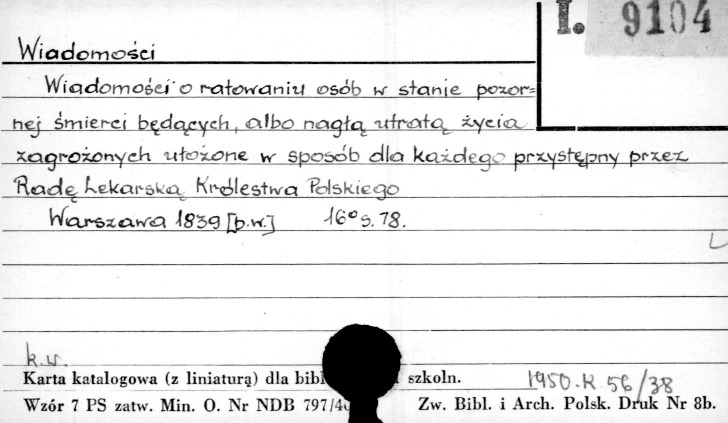 I. 9104
Wiadomości
Wiadomości o ratowaniu osób w stanie pozor=
nej śmierci będących, albo nagłą utratą życia
zagrożonych ułożone w sposób dla każdego przystępny przez
Radę Lekarską Królestwa Polskiego
Warszawa 1839 [b.w.] 16° s. 78.
k.w.
Karta katalogowa (z liniaturą) dla bibl szkoln.
1950.K.56/38
Wzór 7 PS zatw. Min. O. Nr NDB 797/4 Zw. Bibl. i Arch. Polsk. Druk Nr 8b.